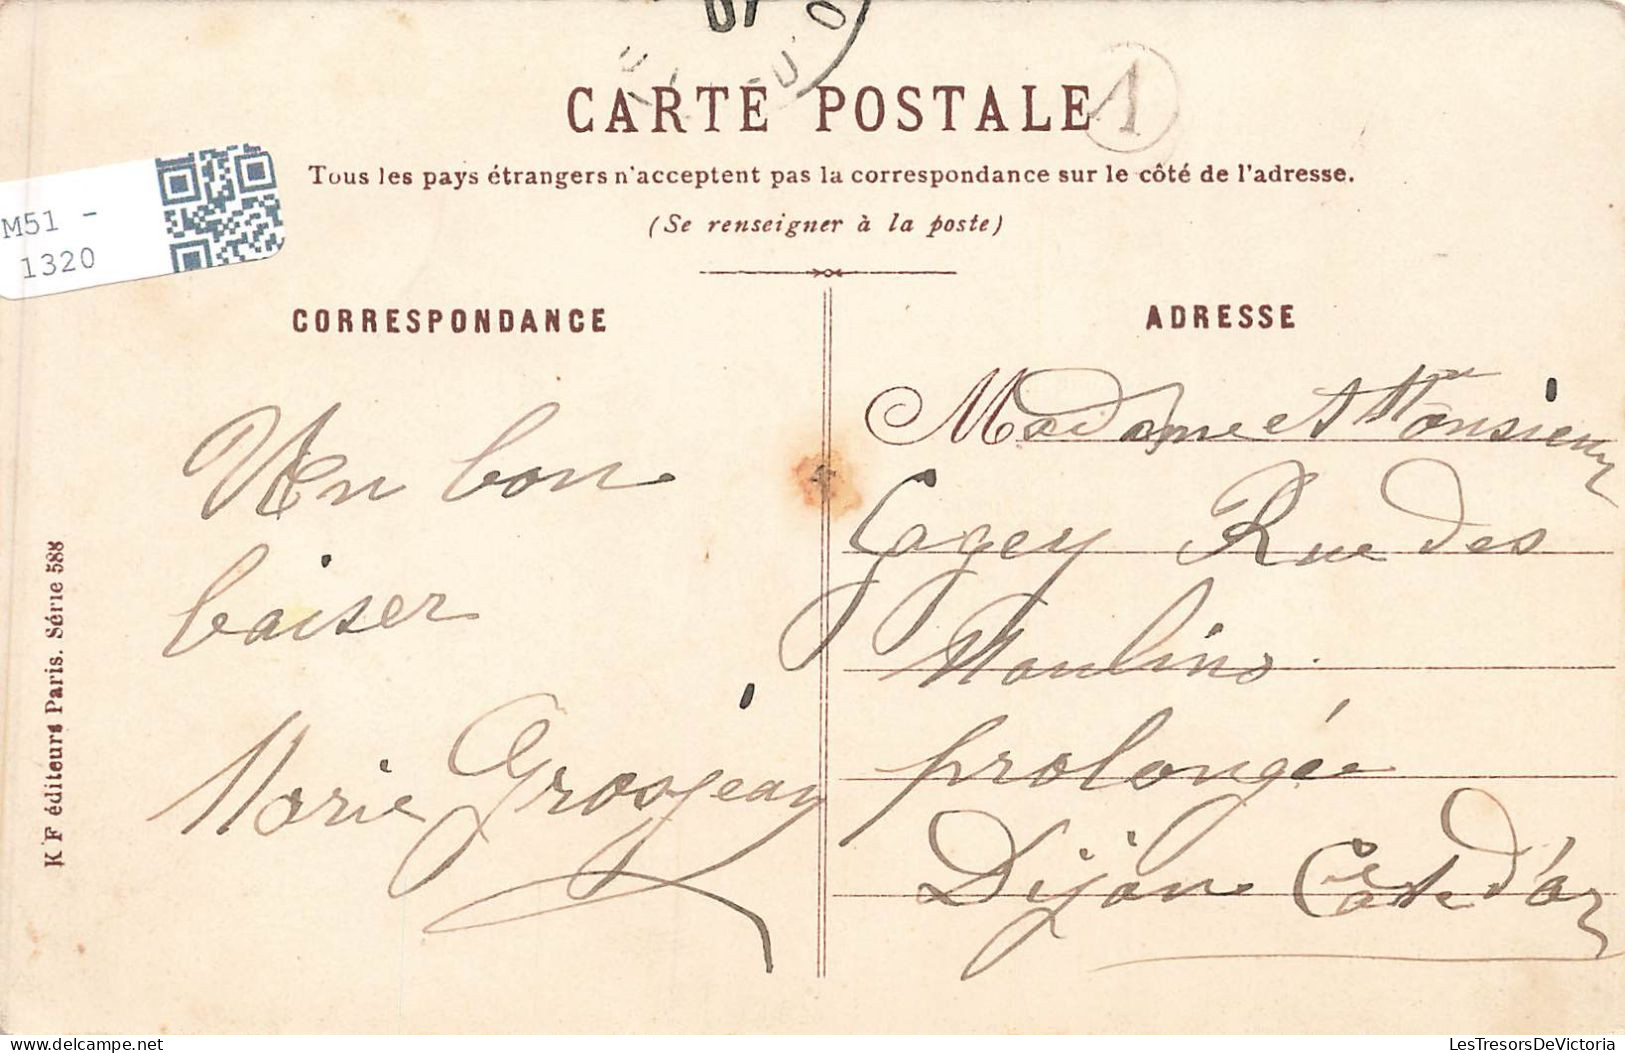 07
CARTE POSTALE
A
Tous les pays étrangers n'acceptent pas la correspondance sur le côté de l'adresse.
(Se renseigner à la poste)
M51 -
1320
CORRESPONDANCE
Un bon
baiser
Marie Grosjean
K F éditeurs Paris. Série 588
ADRESSE
Madame et Monsieur
Gagey Rue des
Moulins
prolongée
Dijon Côte d'or
delcampe.net
LesTresorsDeVictoria